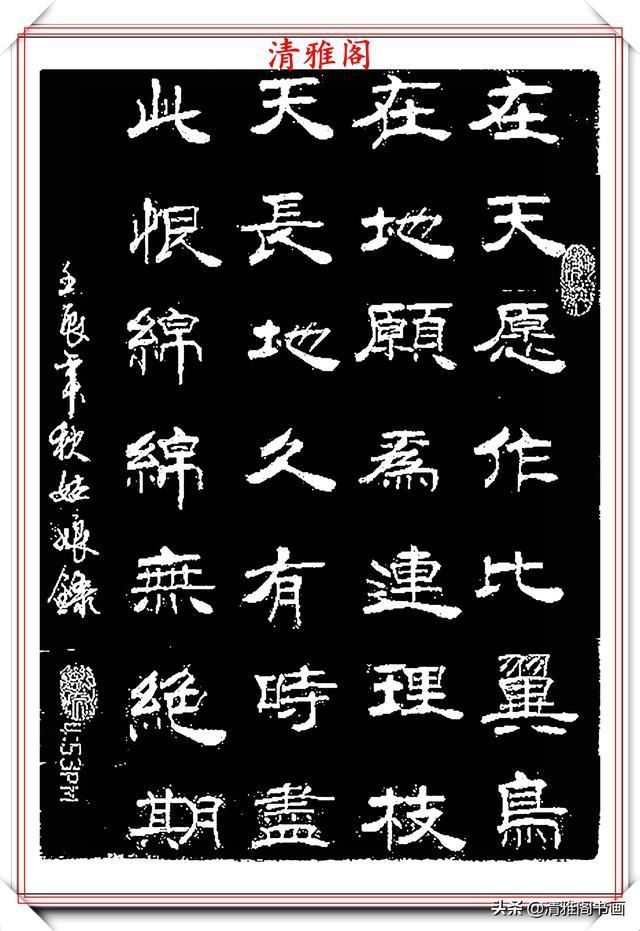 清雅阁
在天愿作比翼鳥
在地願爲連理枝
天長地久有時盡
此恨綿綿無絕期
壬辰年秋姑娘錄
头条 @清雅阁书画